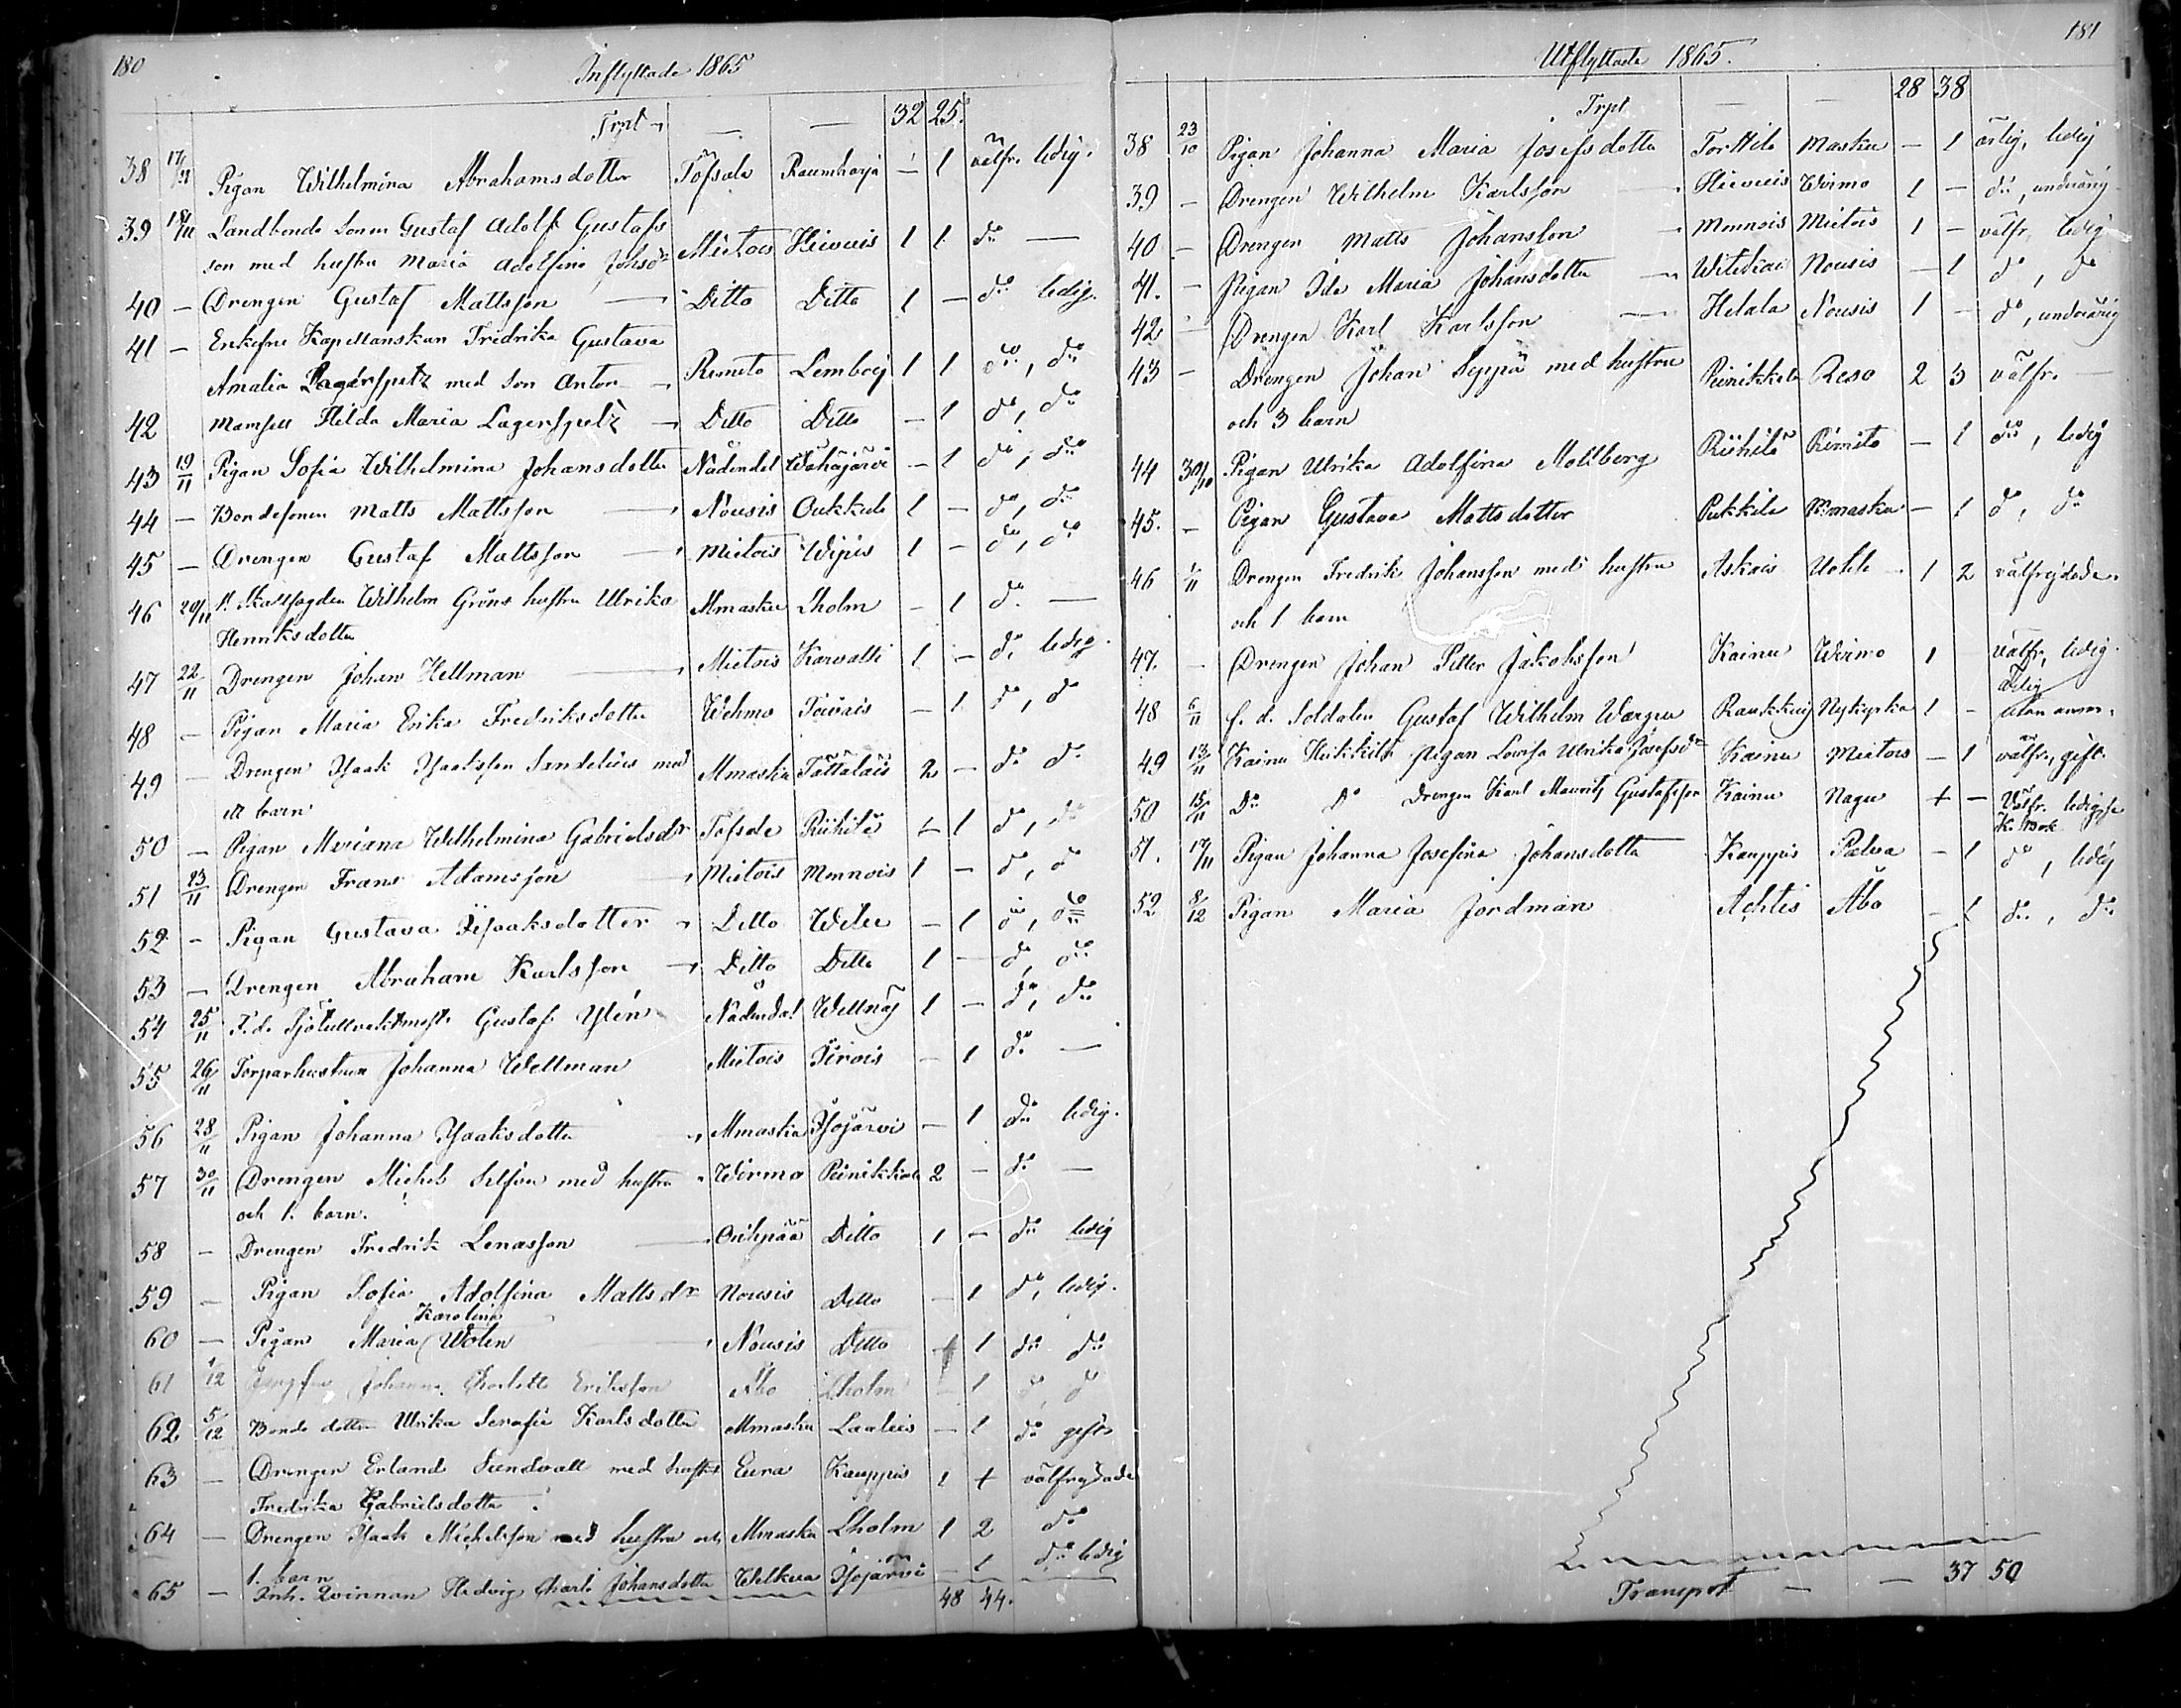 180
Inflyttade 1865
Trpt — — 32 25.
38 17/11 Pigan Wilhelmina Abrahamsdotter Töfsala Raumharja — 1 välfr. ledig.
39 18/11 Landbonde Sonen Gustaf Adolf Gustafs
son med hustru Maria Adolfina Johsdr Mietois Hievais 1 1 do —
40 — Drengen Gustaf Mattsson Ditto Ditto 1 — do ledig.
41 — Enkefru Kapellanskan Fredrika Gustava
Amalia Lagerspetz med son Anton Rimito Lemboij 1 1 do, do
42 Mamsell Hilda Maria Lagerspetz Ditto Ditto — 1 do, do
43 19/11 Pigan Sofia Wilhelmina Johansdotter Nådendal Wähäjärvi — 1 do, do
44 — Bondesonen Matts Mattsson Nousis Oukkula 1 — do, do
45 — Drengen Gustaf Mattsson Mietois Wijais 1 — do, do
46 20/11 Skallfogden Wilhelm Gröns hustru Ulrika Mmasku Lholm — 1 do —
Henriksdotter
47 22/11 Drengen Johan Hellman Mietois Karvatti 1 — do ledig.
48 — Pigan Maria Erika Fredriksdotter Wehmo Toivais — 1 do, do
49 — Drengen Isaak Isaaksson Sandelius med Mmasku Tättalais 2 — do do
ett barn
50 — Pigan Mariana Wilhelmina Gabrielsdr Töfsala Riihilä — 1 do, do
51 23/11 Drengen Frans Adamsson Mietois Monnois 1 — do, do
52 — Pigan Gustava Isaaksdotter Ditto — 1 do, do
53 — Drengen Abraham Karlsson Ditto Ditto 1 — do, do
54 25/11 F.d. Gustaf Ylén Nådendal 1 — do, do
55 26/11 Torparhustrun Johanna Wellman Mietois — 1 do —
56 28/11 Pigan Johanna Isaaksdotter Mmasku Isojärvi — 1 do ledig.
57 30/11 Drengen Michel med hustru Wirmo Peinikkala 2 — do —
och 1. barn.
58 — Drengen Fredrik Lenasson Oripää Ditto 1 — do ledig
59 — Pigan Sofia Adolfina Mattsdr Nousis Ditto — 1 do, ledig.
Karolina
60 — Pigan Maria Wolin Nousis Ditto — 1 do do
61 1/12 Jungfru Johanna Charlotta Eriksson Åbo Lholm — 1 do do
62 5/12 Bonde dottern Ulrika Serafia Karlsdotter Mmasku Laaluis — 1 do gift
63 — Drengen Erland Sundvall med hustru Eura Kauppis 1 1 välfrejdade
Fredrika Gabrielsdotter
64 — Drengen Isaak Michelsson med hustru och Mmasku Lholm 1 2 do
1. barn
65 — Inh. Qvinnan Hedvig Charl: Johansdotter Welkua Isojärvi — 1 do ledig
48 44.
181
Utflyttade 1865.
Trpt — — 28 38
38 23/10 Pigan Johanna Maria Josefsdotter Torttila Masku — 1 ärlig, ledig
39 — Drengen Wilhelm Karlsson Hievais Wirmo 1 — do, undvärig
40 — Drengen Matts Johansson Monnois Mietois 1 — välfr, ledig
41. — Pigan Ida Maria Johansdotter Nousis — 1 do, do
42 — Drengen Karl Karlsson Helala Nousis 1 — do, undvärig
43 — Drengen Johan Seppä med hustru Peinikkala Reso 2 3 välfr. —
och 3 barn
44 30/10 Pigan Ulrika Adolfina Mollberg Riihilä Rimito — 1 do, ledig
45. — Pigan Gustava Mattsdotter Pukkila Mmasku — 1 do, do
46 1/11 Drengen Fredrik Johansson med hustru Askais 1 2 välfrejdade.
och 1 barn
47. — Drengen Johan Petter Jakobsson Kainu Wirmo 1 välfr, ledig.
48 6/11 f. d. Soldaten Gustaf Wilhelm Wargen Raukkuij Nykyrka 1 —
49 13/11 Kainu Heikkilä Pigan Lovisa Ulrika Josefsdr Kainu Mietois — 1 välfr, gift.
50 15/11 Do Do Drengen Karl Mauritz Gustafsson Kainu Nagu 1 — Välfr. ledig, se
K. Bok
51. 17/11 Pigan Johanna Josefina Johansdotter Kauppis Palva — 1 do, ledig
52 8/12 Pigan Maria Jordman Achtis Åbo — 1 do, do
Transport — — 37 50